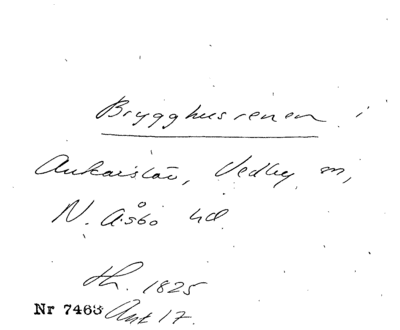 Brygghusrenen i
Ankarslöv, Vedby sn,
N. Åsbo hd.
th. 1825
Nr 7463 Ant 17.